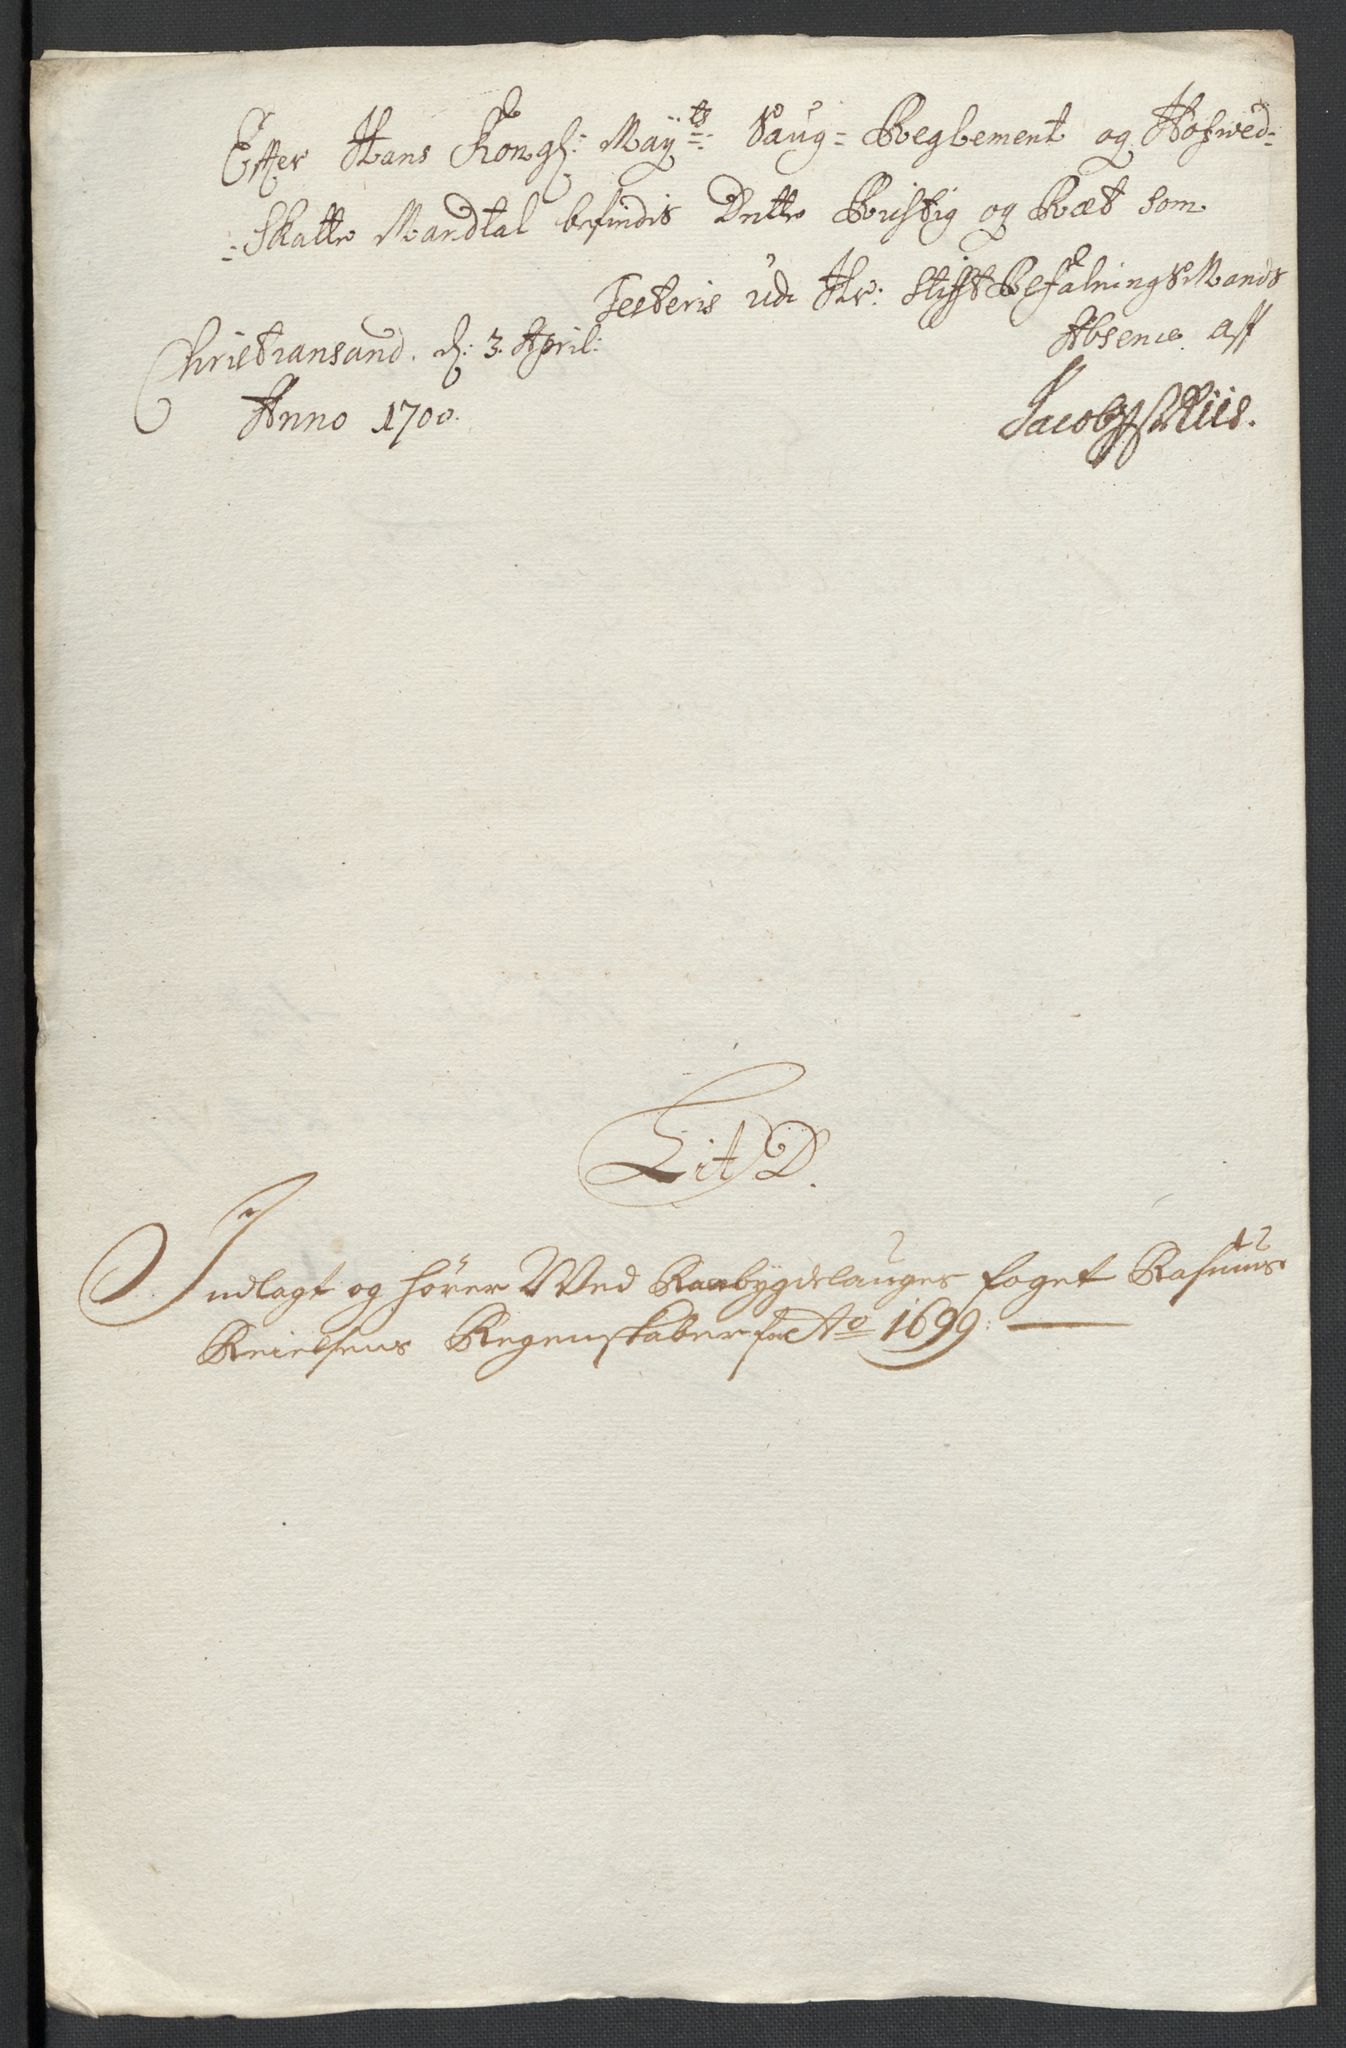 Efter Hans Kongl: Maÿ:ts Saug= Reglement og Hofved=
=Skatte Mandtal befindis Dette Rigtig og Ræt som
Testeris udi Hr: Stifft Befalnings Mands
Absence aff
Christiansand. d: 3. April:
Anno 1700.
Jacob Riis.
Lit D.
Indlagt og hører Ved Raabygdelauges foget Rasmus
Reielsens Regenskaber for Ao 1699: